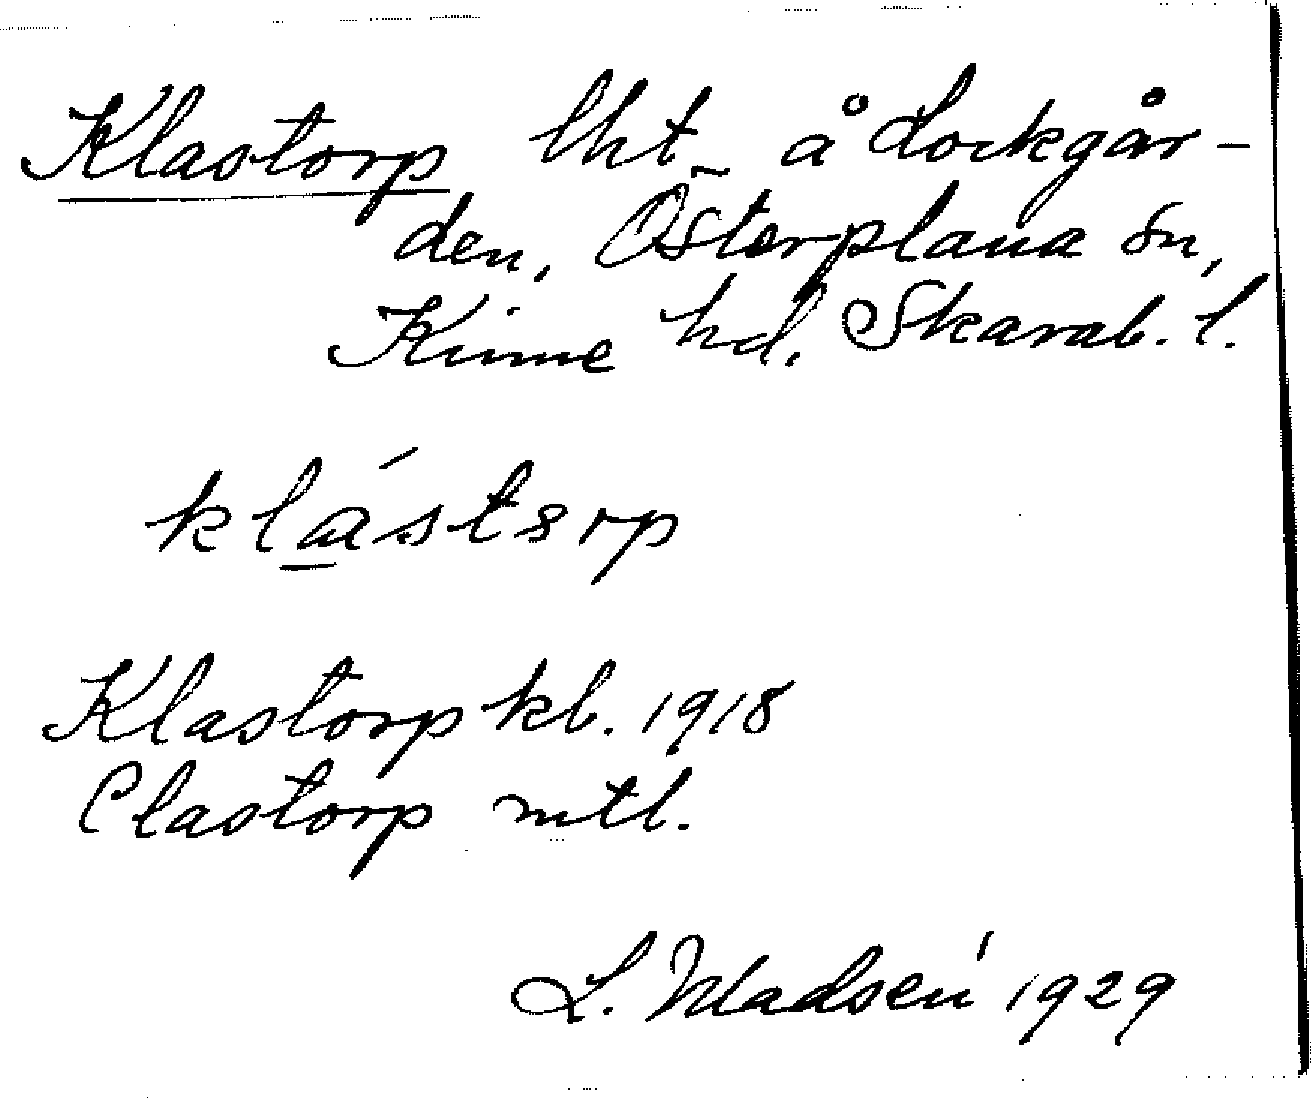 Klastorp lht. å Lockgår-
den, Österplana sn,
Kinne hd. Skarab. l.
klástorp
Klastorp kb. 1918
Clastorp mtl.
L. Madsén 1929